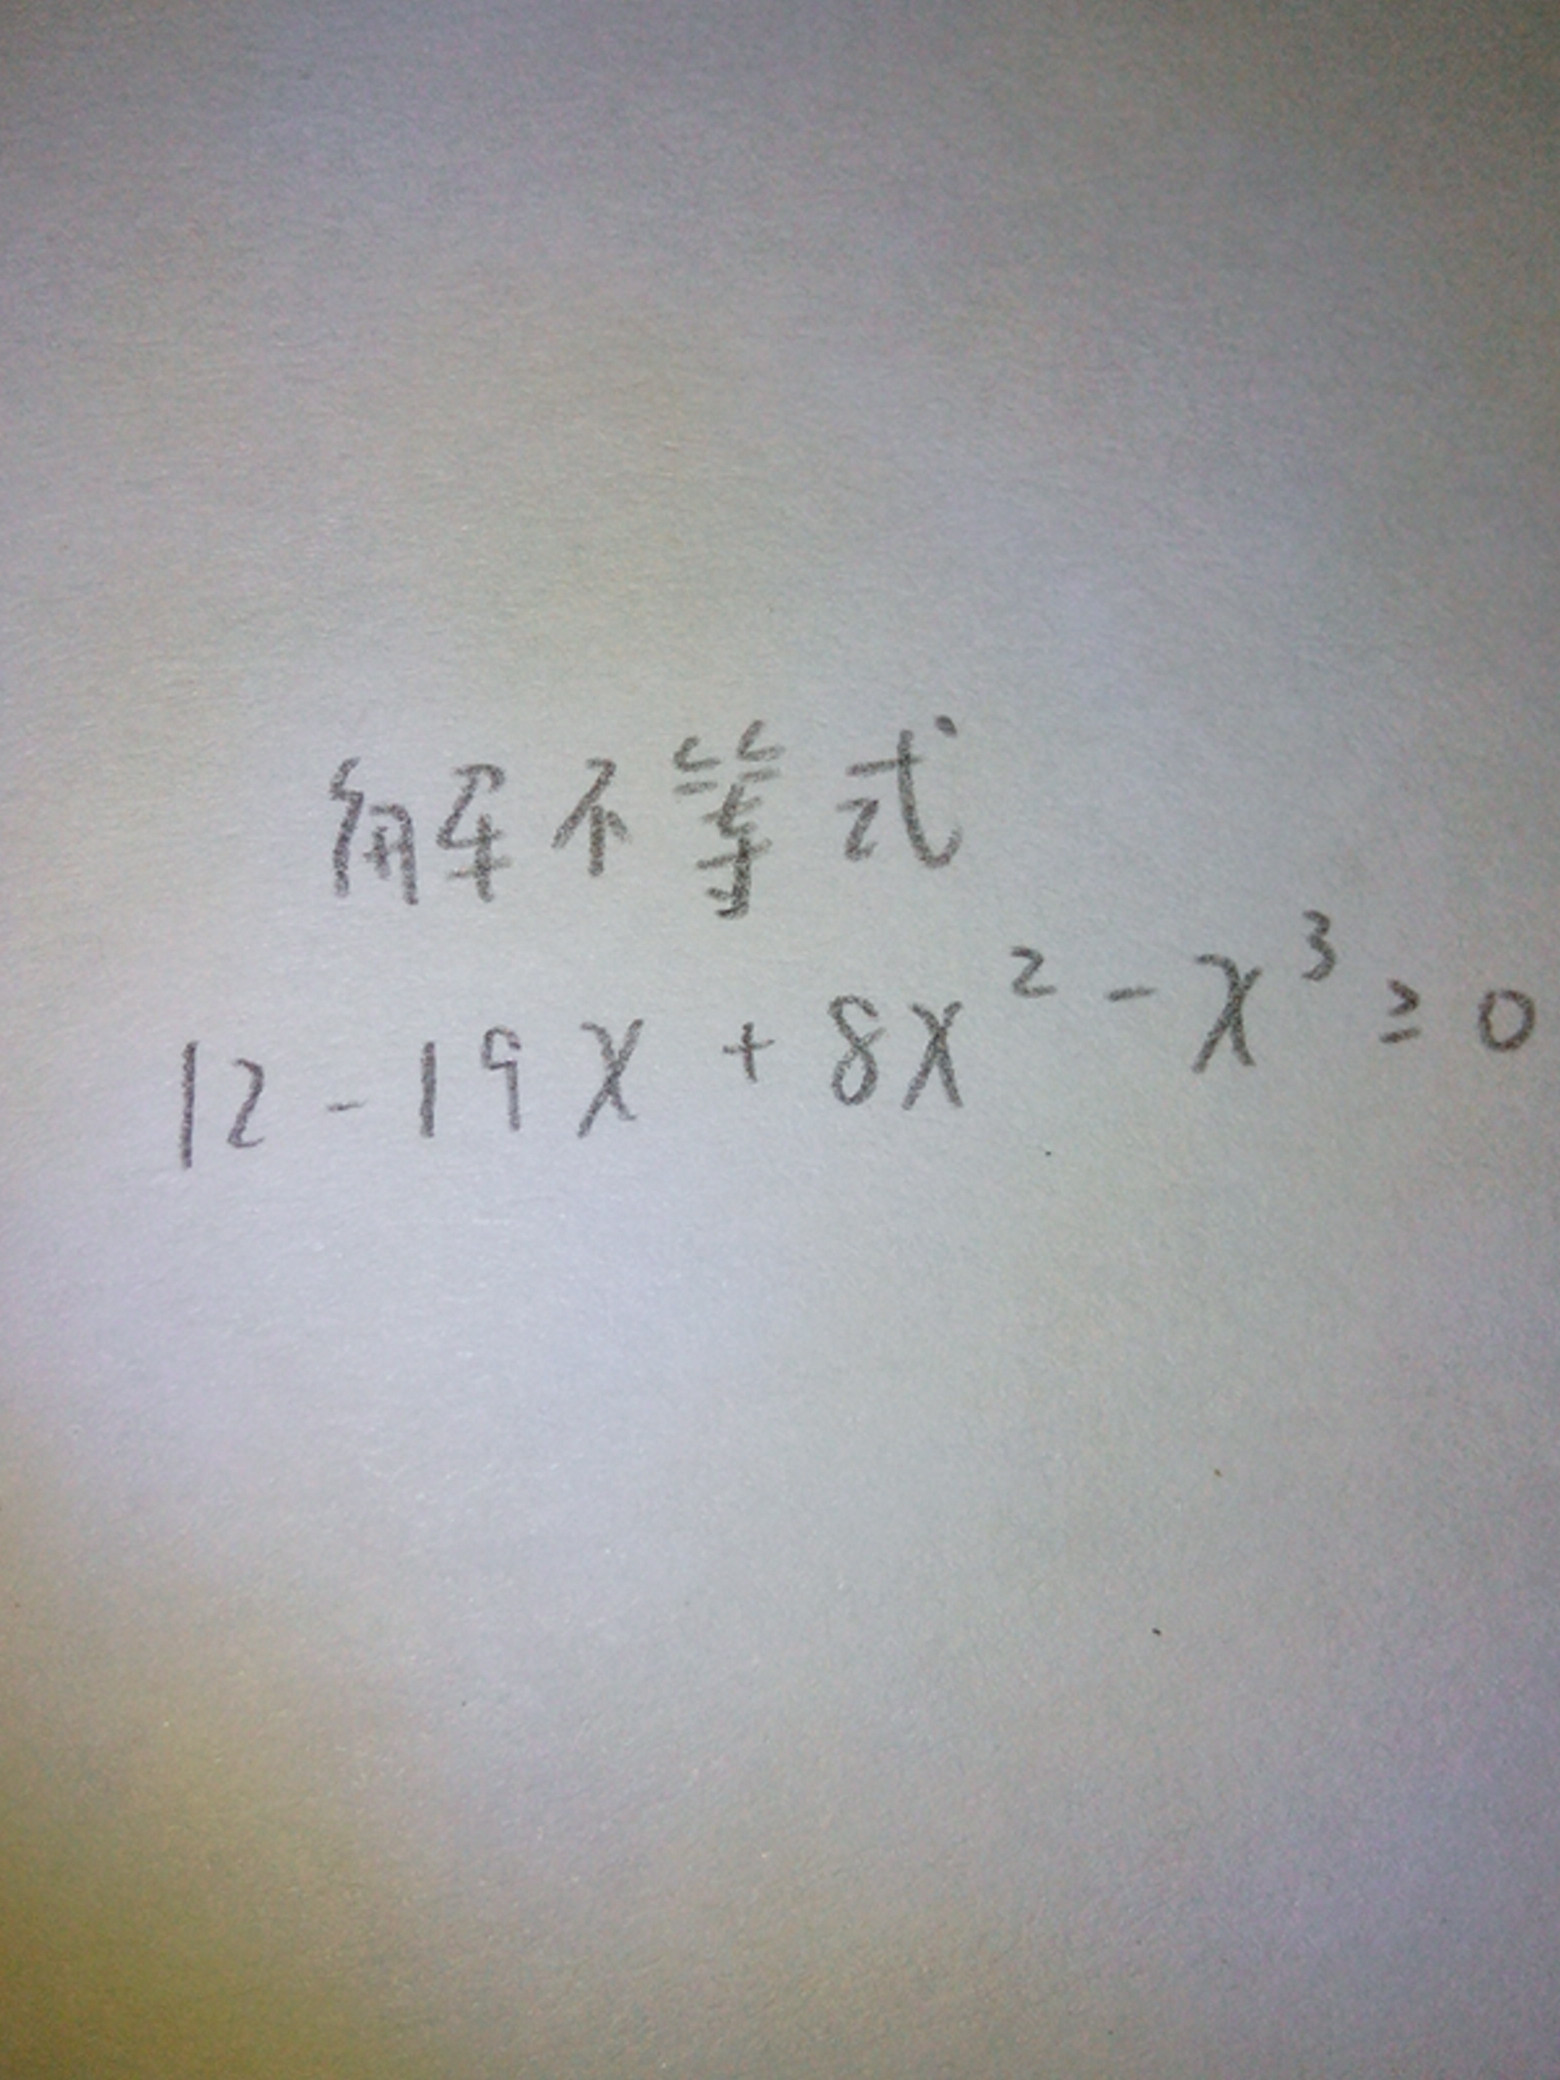 解不等式
12-19x+8x²-x³≥0